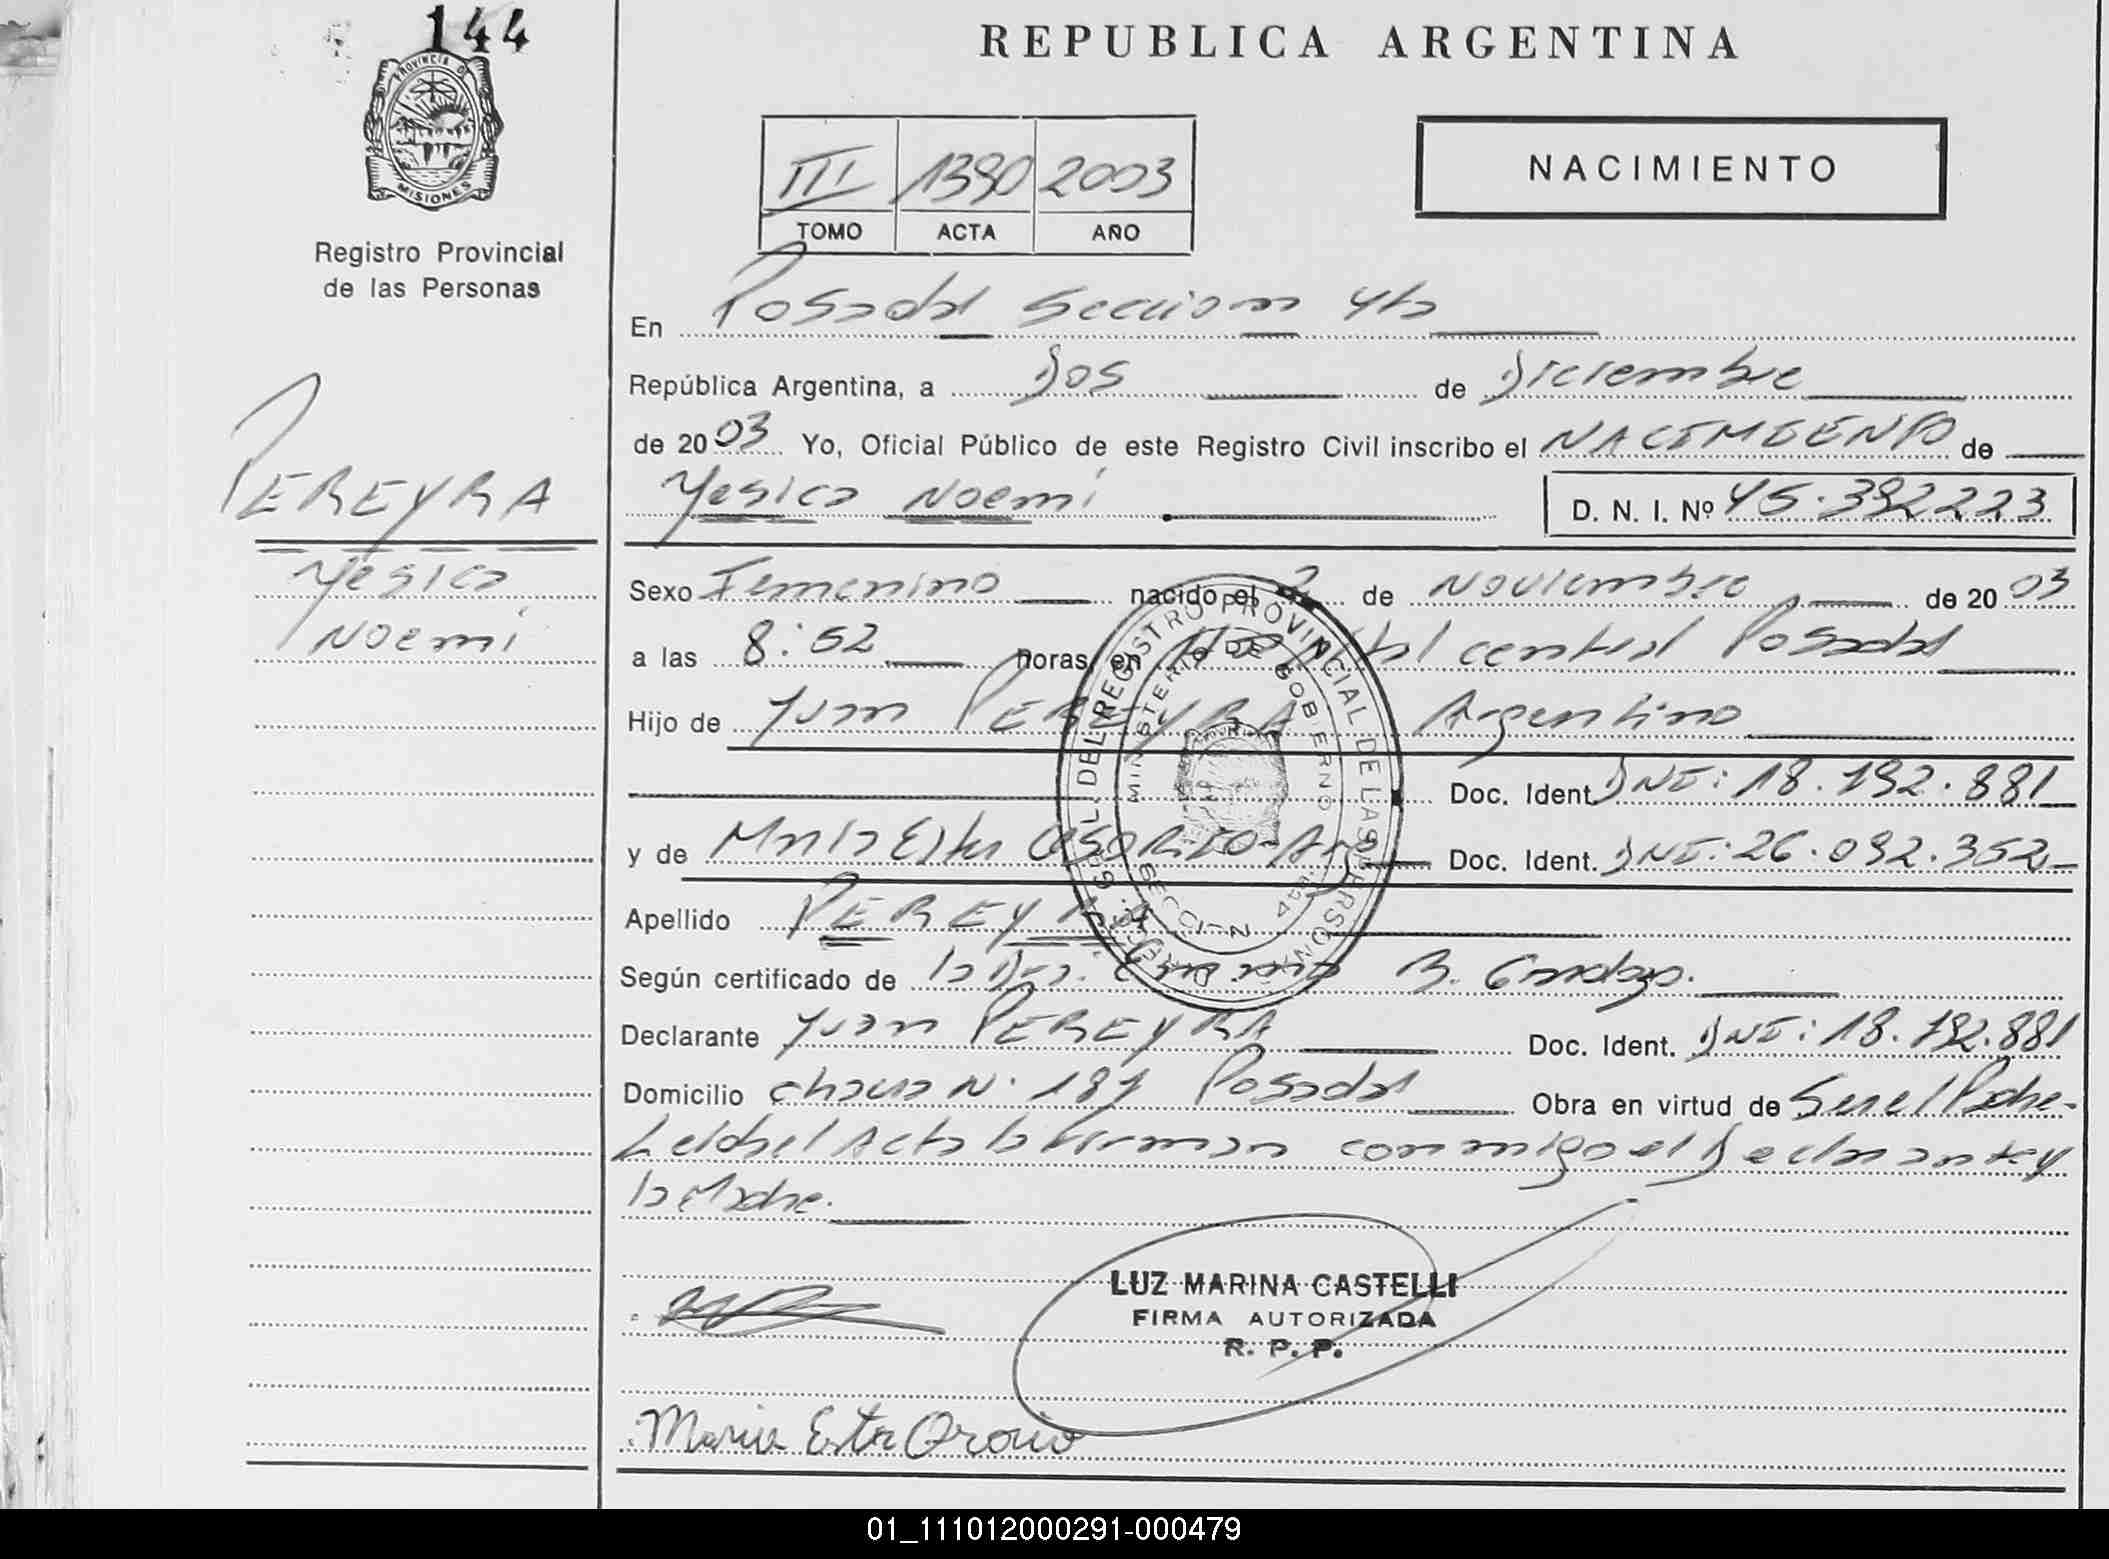 144
PROVINCIA DE
MISIONES
Registro Provincial
de las Personas
REPUBLICA ARGENTINA
NACIMIENTO
III 1390 2003
TOMO ACTA AÑO
En Posadas Seccion 4ta
República Argentina, a Dos de Diciembre
de 2003 Yo, Oficial Público de este Registro Civil inscribo el NACIMIENTO de
Yesica Noemi D. N. I. Nº 45.392223
PEREYRA
Yesica
Noemi
Sexo Femenino nacido el 2 de Noviembre de 2003
a las 8:52 horas, en Hospital central Posadas
Hijo de Juan PEREYRA Argentino
Doc. Ident. DNI: 18.792.881
y de Maria Ester OSORIO - Arg Doc. Ident. DNI: 26.092.352
Apellido PEREYRA
Según certificado de la Dra. B.
Declarante Juan PEREYRA Doc. Ident. DNI: 18.792.881
Domicilio chacra N. 189 Posadas Obra en virtud de Ser el Padre.
Leida el Acta la firman conmigo el Declarante y
la Madre.
DIREC. GRAL. DEL REGISTRO PROVINCIAL DE LAS PERSONAS
MINISTERIO DE GOBIERNO
SECCION 4ta.
LUZ MARINA CASTELLI
FIRMA AUTORIZADA
R. P. P.
Maria Ester Osorio
01_111012000291-000479